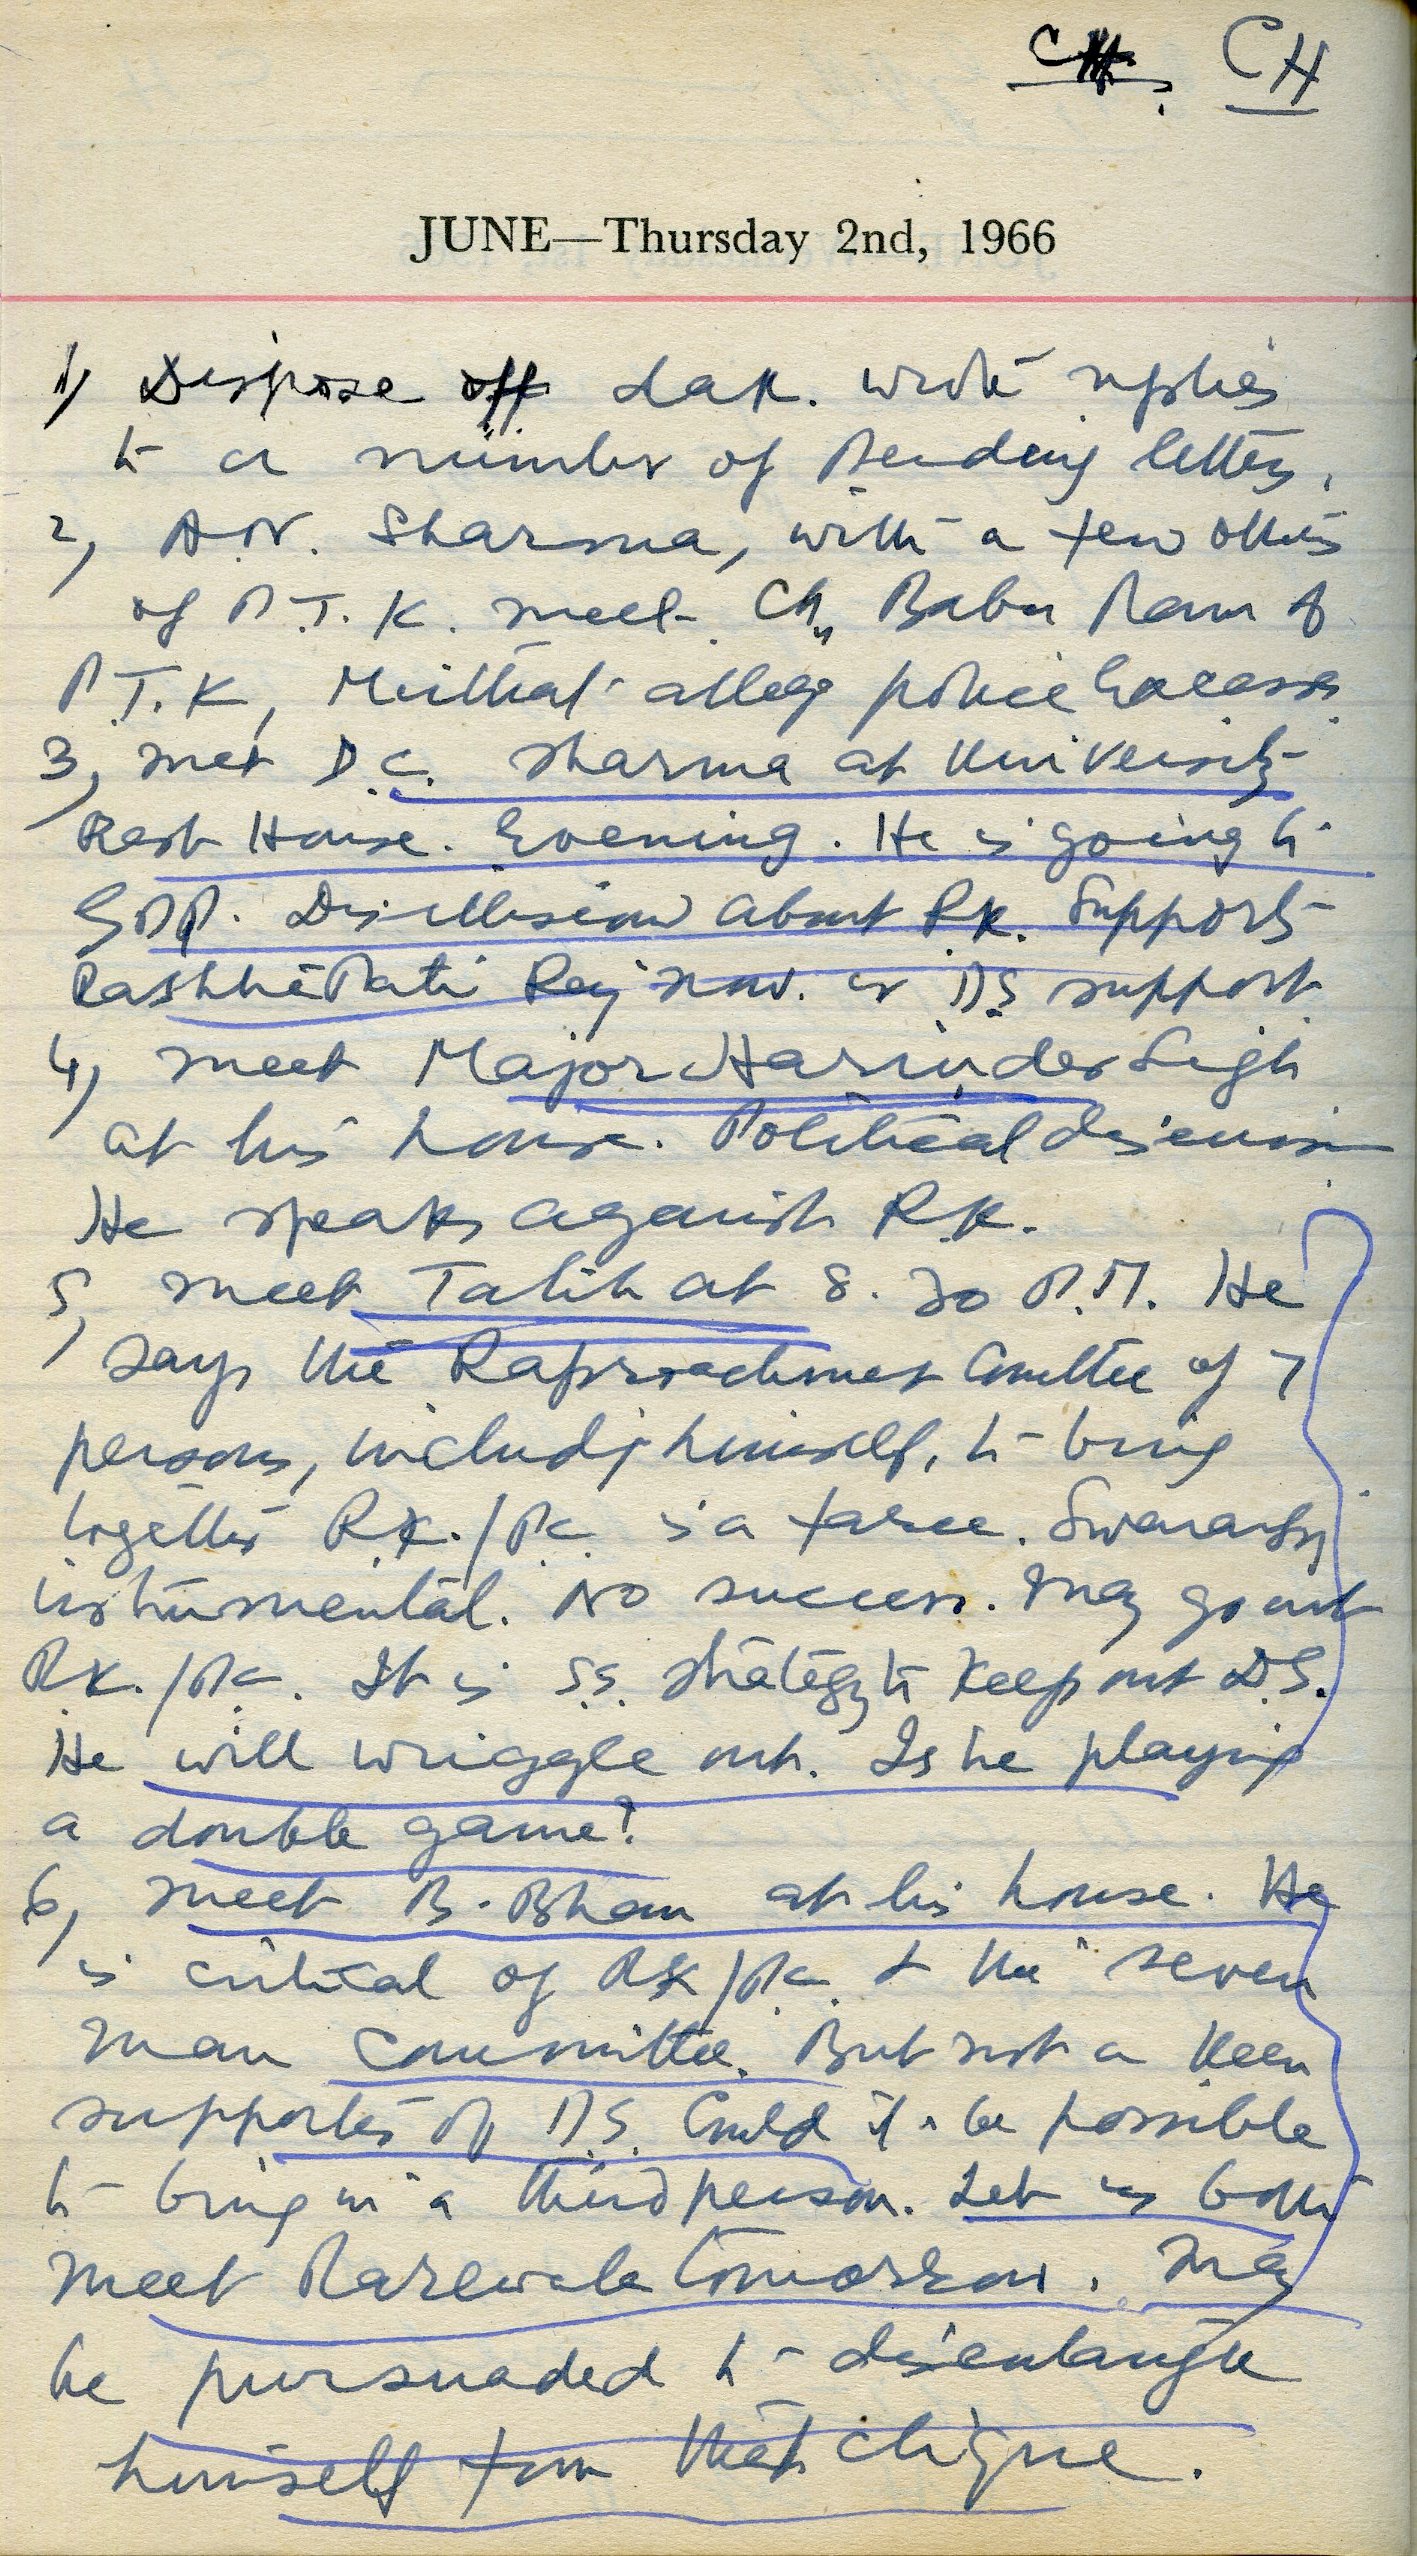 CH, CH
JUNE—Thursday 2nd, 1966
1) Dispose off dak. Wrote replies
to a number of Pending letters.
2, A.N. Sharma, with a few others
of P.T.K. meet. Ch. Babu Ram of
P.T.K, allege police Excesses
3, met D.C. Sharma at University
Rest House. Evening. He is going to
GDP. about R.K. Supports
Rashtrapati Raj now. or DS support
4, meet Major Harinder Singh
at his house. Political discussion
He speaks against R.K.
5, meet Talib at 8.30 P.M. He
says the Raproachment Committee of 7
persons, including himself, to bring
together R.K./P.C. is a farce. Swaransing
instrumental. No success. may go out
R.K./P.C. It is S.S. strategy to keep out D.S.
He will wriggle out. Is he playing
a double game?
6, meet B. Bhan at his house. He
is critical of RK/P.C. & the seven
man committee. But not a keen
supporter of D.S. Could it be possible
to bring in a third person. Let us both
meet Rarewala tomorrow. may
be pursuaded to disentangle
himself from that clique.